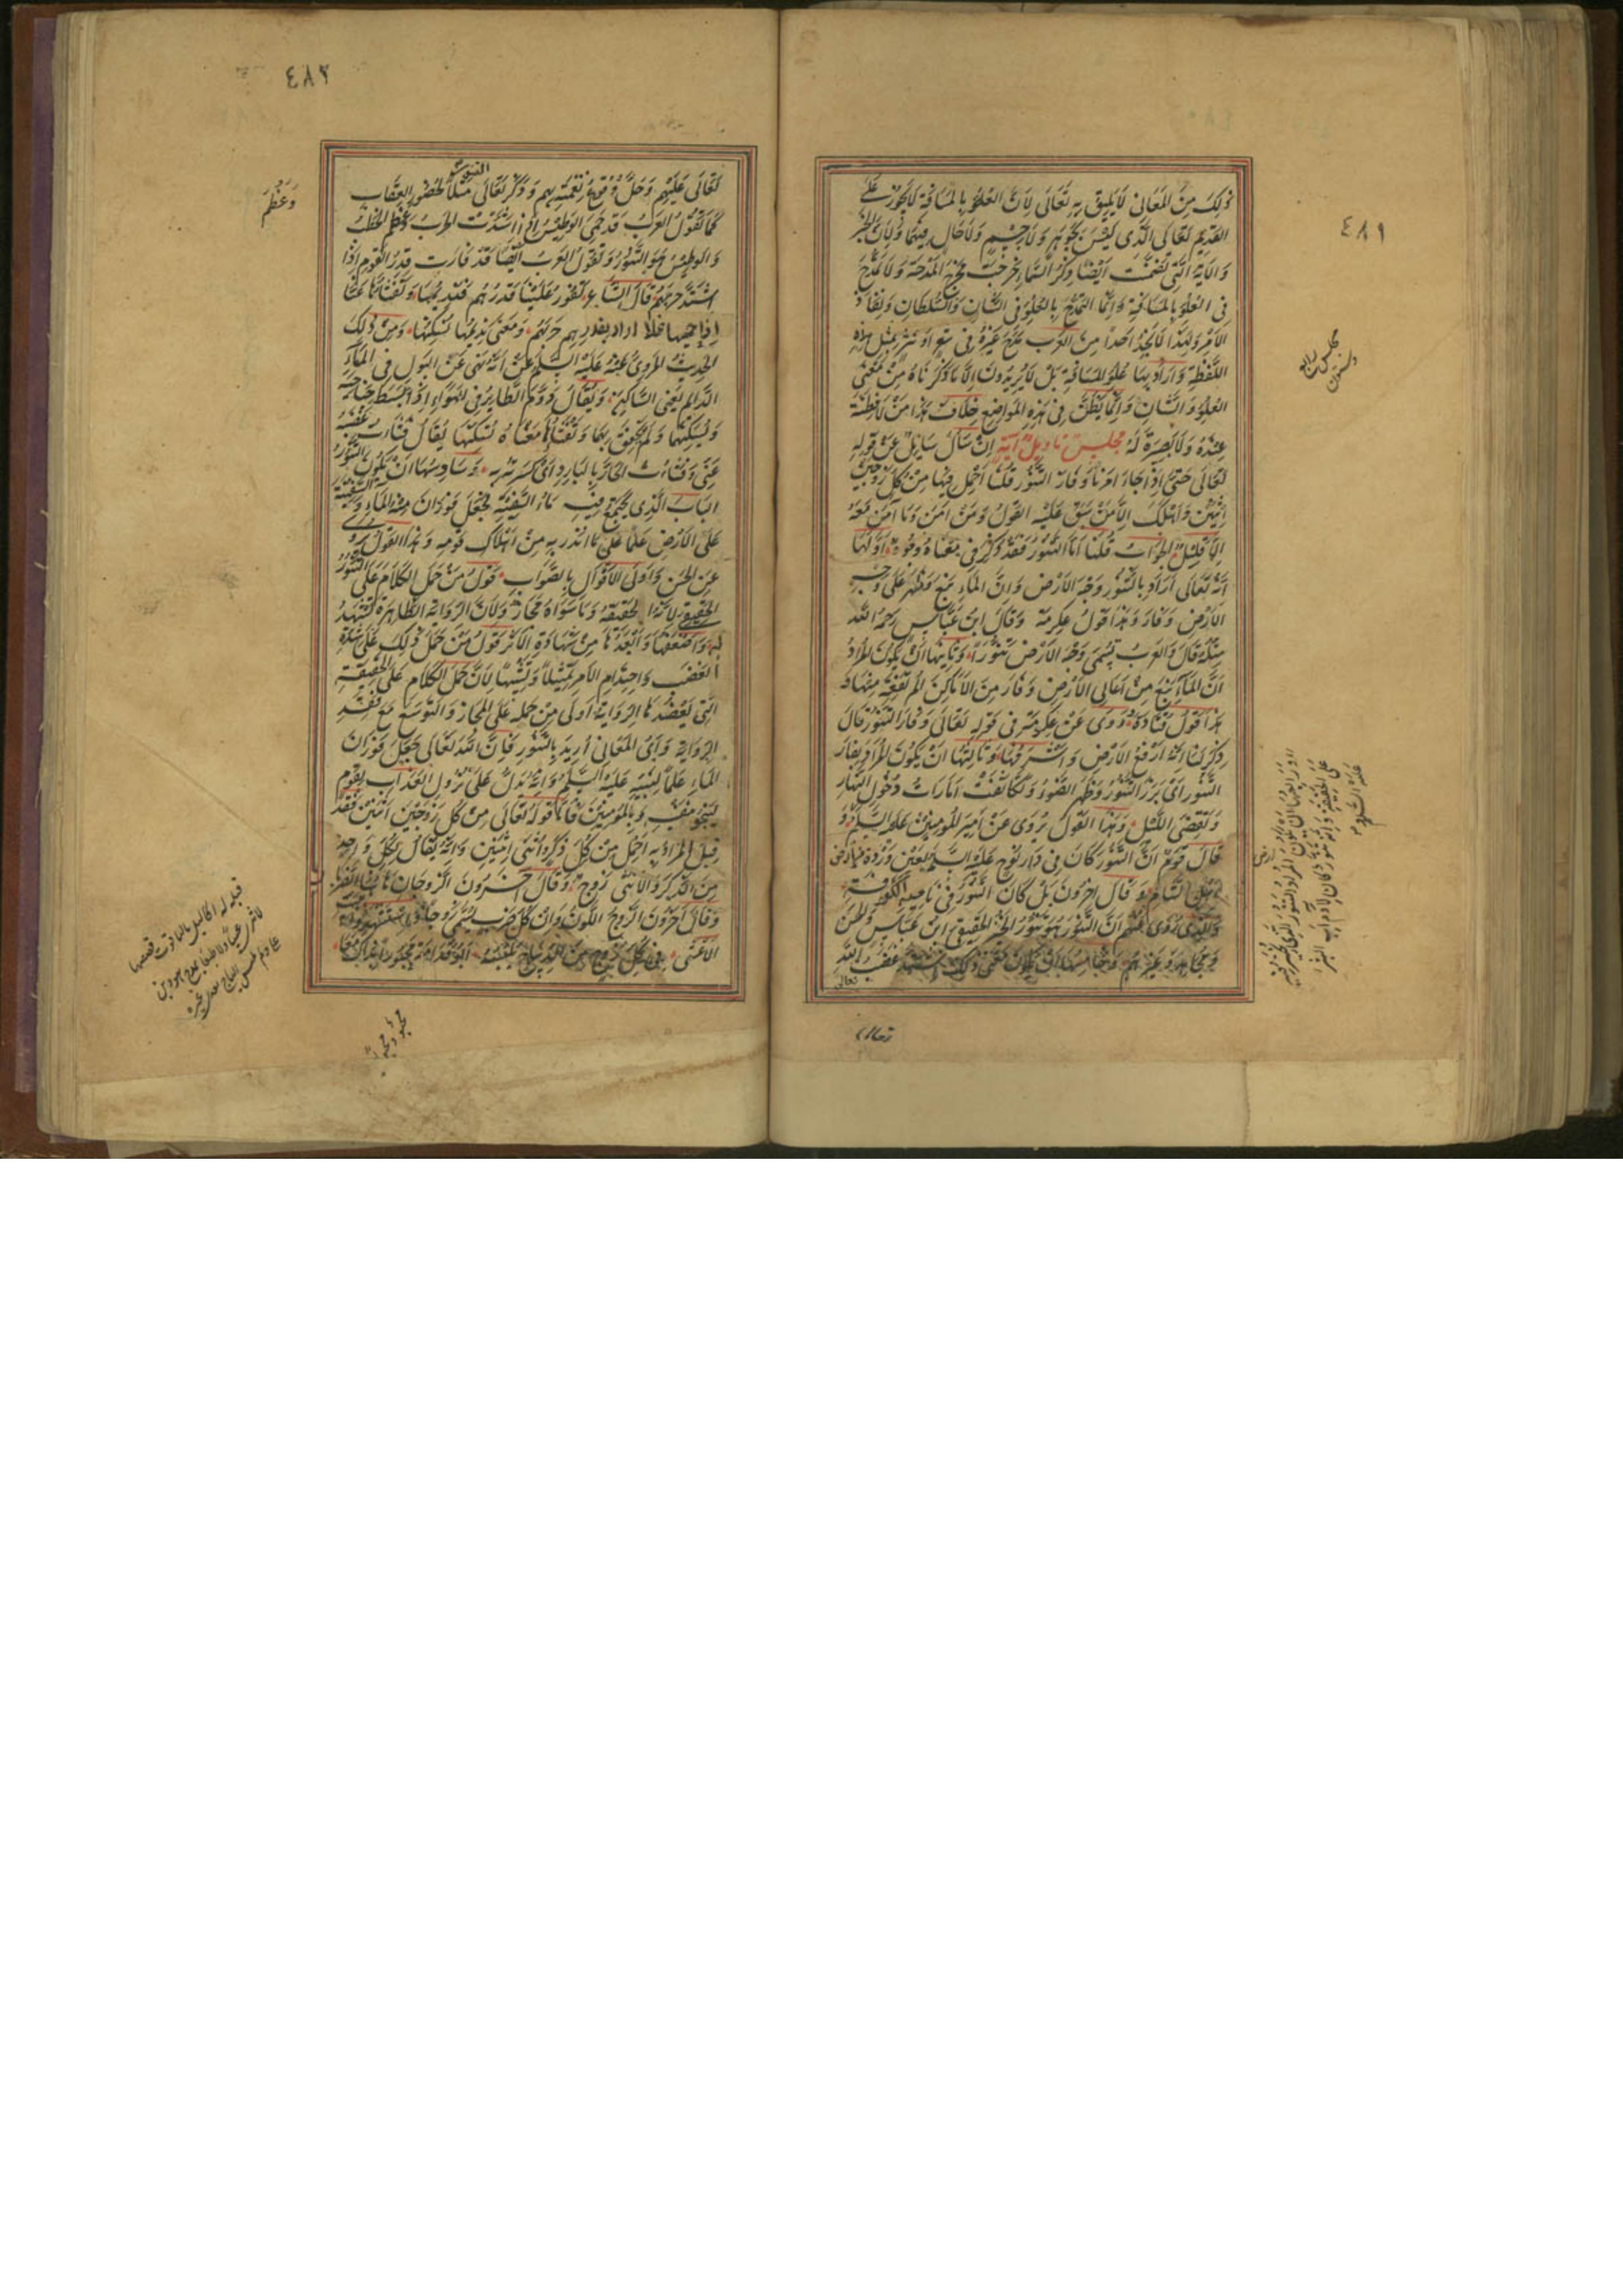 ٤٨١
ذلِكَ مِنَ المَعَانِي لَا يَلِيقُ بِهِ تَعَالَى لِأَنَّ العُلُوَّ بِالمَسَافَةِ لَا يَجُوزُ عَلَى
القَدِيمِ تَعَالَى الَّذِي لَيْسَ بِجَوْهَرٍ وَلَا جِسْمٍ وَلَا حَالٍّ فِيهِمَا وَلِأَنَّ الخَبَرَ
وَالآيَةَ الَّتِي تَضَمَّنَتْ أَيْضًا ذِكْرَ السَّمَاءِ خَرَجَتْ مَخْرَجَ المِدْحَةِ وَلَا تَمَدُّحَ
فِي العُلُوِّ بِالمَسَافَةِ وَإِنَّمَا التَّمَدُّحُ بِالعُلُوِّ فِي الشَّانِ وَالسُّلْطَانِ وَنَفَاذِ
الأَمْرِ وَلِهَذَا لَا نَجِدُ أَحَدًا مِنَ العَرَبِ مَدَحَ غَيْرَهُ فِي شِعْرٍ أَوْ نَثْرٍ بِمِثْلِ هَذِهِ
اللَّفْظَةِ وَأَرَادَ بِهَا عُلُوَّ المَسَافَةِ بَلْ لَا يُرِيدُونَ إِلَّا مَا ذَكَرْنَاهُ مِنْ مَعْنَى
العُلُوِّ وَالشَّانِ وَإِنَّمَا يَظُنُّ فِي هَذِهِ المَوَاضِعِ خِلَافَ هَذَا مَنْ لَا فِطْنَةَ
عِنْدَهُ وَلَا بَصِيرَةَ لَهُ مجلس تاويل آية إِنْ سَأَلَ سَائِلٌ عَنْ قَوْلِهِ
تَعَالَى حَتَّى إِذَا جَاءَ أَمْرُنَا وَفَارَ التَّنُّورُ قُلْنَا احْمِلْ فِيهَا مِنْ كُلٍّ زَوْجَيْنِ
اثْنَيْنِ وَأَهْلَكَ إِلَّا مَنْ سَبَقَ عَلَيْهِ القَوْلُ وَمَنْ آمَنَ وَمَا آمَنَ مَعَهُ
إِلَّا قَلِيلٌ الجَوَابُ قُلْنَا أَمَّا التَّنُّورُ فَقَدْ ذُكِرَ فِي مَعْنَاهُ وُجُوهٌ أَوَّلُهَا
أَنَّهُ تَعَالَى أَرَادَ بِالتَّنُّورِ وَجْهَ الأَرْضِ وَأَنَّ المَاءَ نَبَعَ وَظَهَرَ عَلَى وَجْهِ
الأَرْضِ وَفَارَ وَهَذَا قَوْلُ عِكْرِمَةَ وَقَالَ ابْنُ عَبَّاسٍ رَحِمَهُ اللهُ
مِثْلَهُ قَالَ وَالعَرَبُ تُسَمِّي وَجْهَ الأَرْضِ تَنُّورًا وَثَانِيهَا أَنْ يَكُونَ المُرَادُ
أَنَّ المَاءَ نَبَعَ مِنْ أَعَالِي الأَرْضِ وَفَارَ مِنَ الأَمَاكِنِ المُرْتَفِعَةِ مِنْهَا وَ
هَذَا قَوْلُ قَتَادَةَ وَرَوَى عَنْ عِكْرِمَةَ فِي قَوْلِهِ تَعَالَى وَفَارَ التَّنُّورُ قَالَ
ذُكِرَ لَنَا أَنَّهُ أَرْفَعُ الأَرْضِ وَأَشْرَفُهَا وَثَالِثُهَا أَنْ يَكُونَ المُرَادُ بِفَارَ
التَّنُّورُ أَيْ بَرَزَ النُّورُ وَظَهَرَ الضَّوْءُ وَتَكَاثَفَتْ أَمَارَاتُ دُخُولِ النَّهَارِ
وَتَقَضِّي اللَّيْلِ وَهَذَا القَوْلُ يُرْوَى عَنْ أَمِيرِ المُؤْمِنِينَ عَلَيْهِ السَّلَمُ وَ
قَالَ قَوْمٌ أَنَّ التَّنُّورَ كَانَ فِي دَارِ نُوحٍ عَلَيْهِ السَّلَمُ بِعَيْنِ وَرْدَةَ
الشَّامِ وَقَالَ آخَرُونَ بَلْ كَانَ التَّنُّورُ فِي نَاحِيَةِ الكُوفَةِ
وَالَّذِي رُوِيَ عَنْهُمْ أَنَّ التَّنُّورَ هُوَ تَنُّورُ الخُبْزِ الحَقِيقِيُّ ابْنُ عَبَّاسٍ وَالحَسَنُ
وَمُجَاهِدٌ وَغَيْرُهُمْ وَخَامِسُهَا أَنْ يَكُونَ مَعْنَى ذَلِكَ اشْتَدَّ غَضَبُ اللهِ
تعالى
مجلس رابع
وستون
عليه السلم
٤٨٢
تَعَالَى عَلَيْهِمْ وَحَلَّ وُقُوعُ نِقْمَتِهِ بِهِمْ وَذَكَرَ تَعَالَى التنور مَثَلًا لِحُضُورِ العِقَابِ
كَمَا تَقُولُ العَرَبُ قَدْ حَمِيَ الوَطِيسُ إِذَا اشْتَدَّتِ الحَرْبُ وَعَظُمَ الخَطْبُ
وَعَظُمَ
وَالوَطِيسُ هُوَ التَّنُّورُ وَتَقُولُ العَرَبُ أَيْضًا قَدْ فَارَتْ قِدْرُ القَوْمِ إِذَا
اشْتَدَّ حَرْبُهُمْ قَالَ الشَّاعِرُ تَفُورُ عَلَيْنَا قِدْرُهُمْ فَنُدِيمُهَا وَنَفْثَأُهَا عَنَّا
إِذَا حَمْيُهَا غَلَا أراد بقدرهم حَرْبَهُمْ وَمَعْنَى نُدِيمُهَا نُسَكِّنُهَا وَمِنْ ذَلِكَ
الحَدِيثُ المَرْوِيُّ عَنْهُ عَلَيْهِ السَّلَمُ أَنَّهُ نَهَى عَنِ البَوْلِ فِي المَاءِ
الدَّائِمِ يَعْنِي السَّاكِنِ وَيُقَالُ دَوَّمَ الطَّائِرُ فِي الهَوَاءِ إِذَا بَسَطَ جَنَاحَيْهِ
وَسَكَّنَهُمَا وَلَمْ يَخْفِقْ بِهِمَا وَنَفْثَأُهَا مَعْنَاهُ نُسَكِّنُهَا يُقَالُ فَثَأْتُ غَضَبَهُ
عَنِّي وَفَثَأْتُ الحَارَّ بِالبَارِدِ أَيْ كَسَرْتُهُ بِهِ وَسَادِسُهَا أَنْ يَكُونَ التَّنُّورُ
البَابَ الَّذِي يَجْتَمِعُ فِيهِ مَاءُ السَّفِينَةِ فَجَعَلَ فَوَرَانَ المَاءِ مِنْهُ وَالسَّفِينَةُ
عَلَى الأَرْضِ عَلَمًا عَلَى مَا أَنْذَرَ بِهِ مِنْ إِهْلَاكِ قَوْمِهِ وَهَذَا القَوْلُ يُرْوَى
عَنِ الحَسَنِ وَأَوْلَى الأَقْوَالِ بِالصَّوَابِ قَوْلُ مَنْ حَمَلَ الكَلَامَ عَلَى التَّنُّورِ
الحَقِيقِيِّ لِأَنَّهُ الحَقِيقَةُ وَمَا سِوَاهُ مَجَازٌ وَلِأَنَّ الرِّوَايَةَ الظَّاهِرَةَ تَشْهَدُ
لَهُ وَأَضْعَفُهَا وَأَبْعَدُهَا مِنْ شَهَادَةِ الأَثَرِ قَوْلُ مَنْ حَمَلَ ذَلِكَ عَلَى شِدَّةِ
الغَضَبِ وَاحْتِدَامِ الأَمْرِ تَمْثِيلًا وَتَشْبِيهًا لِأَنَّ حَمْلَ الكَلَامِ عَلَى الحَقِيقَةِ
الَّتِي تَعْضُدُهَا الرِّوَايَةُ أَوْلَى مِنْ حَمْلِهِ عَلَى المَجَازِ وَالتَّوَسُّعِ مَعَ فَقْدِ
الرِّوَايَةِ وَأَيُّ المَعَانِي أُرِيدَ بِالتَّنُّورِ فَإِنَّ اللهَ تَعَالَى جَعَلَ فَوَرَانَ
المَاءِ عَلَمًا لِنَبِيِّهِ عَلَيْهِ السَّلَمُ وَآيَةً تَدُلُّ عَلَى نُزُولِ العَذَابِ بِقَوْمِهِ
لِيَنْجُوَ بِنَفْسِهِ وَبِالمُؤْمِنِينَ فَأَمَّا قَوْلُهُ تَعَالَى مِنْ كُلٍّ زَوْجَيْنِ اثْنَيْنِ فَقَدْ
قِيلَ المُرَادُ بِهِ احْمِلْ مِنْ كُلٍّ ذَكَرٍ وَأُنْثَى اثْنَيْنِ وَإِنَّهُ يُقَالُ لِكُلِّ وَاحِدٍ
مِنَ الذَّكَرِ وَالأُنْثَى زَوْجٌ وَقَالَ آخَرُونَ الزَّوْجَانِ هَاهُنَا الضَّرْبَانِ
وَقَالَ آخَرُونَ الزَّوْجُ اللَّوْنُ وَأَنَّ كُلَّ ضَرْبٍ يُسَمَّى زَوْجًا وَاسْتَشْهَدُوا بِبَيْتِ
الأَعْشَى فِي كُلِّ زَوْجٍ مِنَ الدِّيبَاجِ يَلْبَسُهُ أَبُو قُدَامَةَ مَحْبُوًّا بِذَاكَ مَعًا